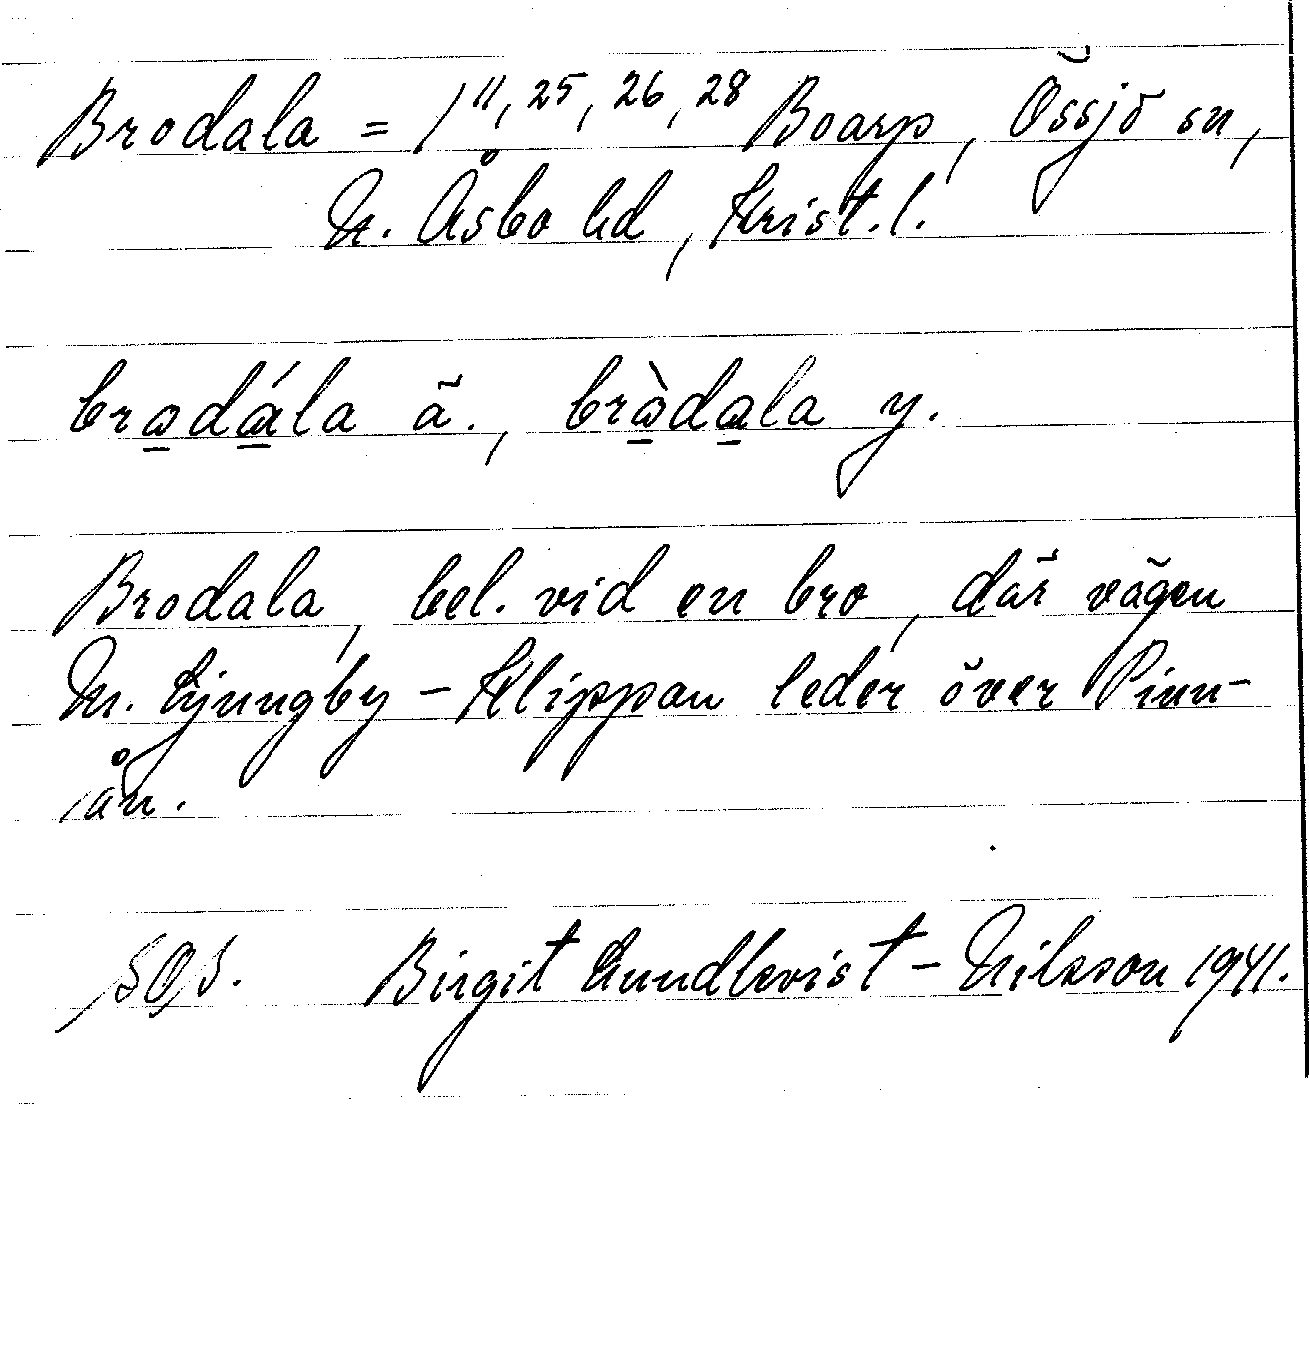 Brodala = 1 11, 25, 26, 28 Boarp, Össjö sn,
N. Åsbo hd, Krist. l.
brodála ä., bròdala y.
Brodala, bel. vid en bro, där vägen
M. Ljungby - Klippan leder över Pinn-
ån.
SOS. Birgit Lundkvist - Nilsson 1941.